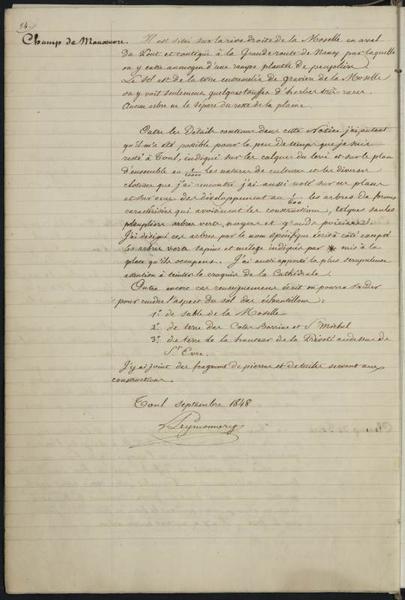 54
Champ de Manœuvre. Il est situé sur la rive droite de la Moselle en aval
du Pont et contigu à la Grande route de Nancy par laquelle
on y entre au moyen d'une rampe plantée de peupliers
Le sol est de la terre entremêlée de gravier de la Moselle
on y voit seulement quelques touffes d'herbes très rares.
Aucun arbre ne le sépare du reste de la plaine.
Outre les Détails contenus dans cette Notice j'ai autant
qu'il m'a été possible pour le peu de temps que je suis
resté à Toul, indiqué sur les calques du levé et sur le plan
d'ensemble au les natures de cultures et les diverses
clôtures que j'ai rencontré j'ai aussi noté sur ce plan
et sur ceux des développements au les arbres de formes
caractérisées qui avoisinent les constructions, telques saules
peupliers arbres verts, noyers et grands
J'ai désigné ces arbres par le nom spécifique écrit à côté
Les arbres verts sapins et mélèze indiqués par mis à la
place qu'ils occupent. J'ai aussi apporté la plus scrupuleuse
attention à teinter le croquis de la Cathédrale.
Outre encore ces renseignements
pour rendre l'aspect du sol des échantillons:
1° de sable de la Moselle
2° de terre des Cotes Barine et St Michel
3° de terre de la hauteur de la au dessus de
St Evre.
J'y ai joint des fragments de pierres et de tuiles servant aux
constructions.
Toul Septembre 1848